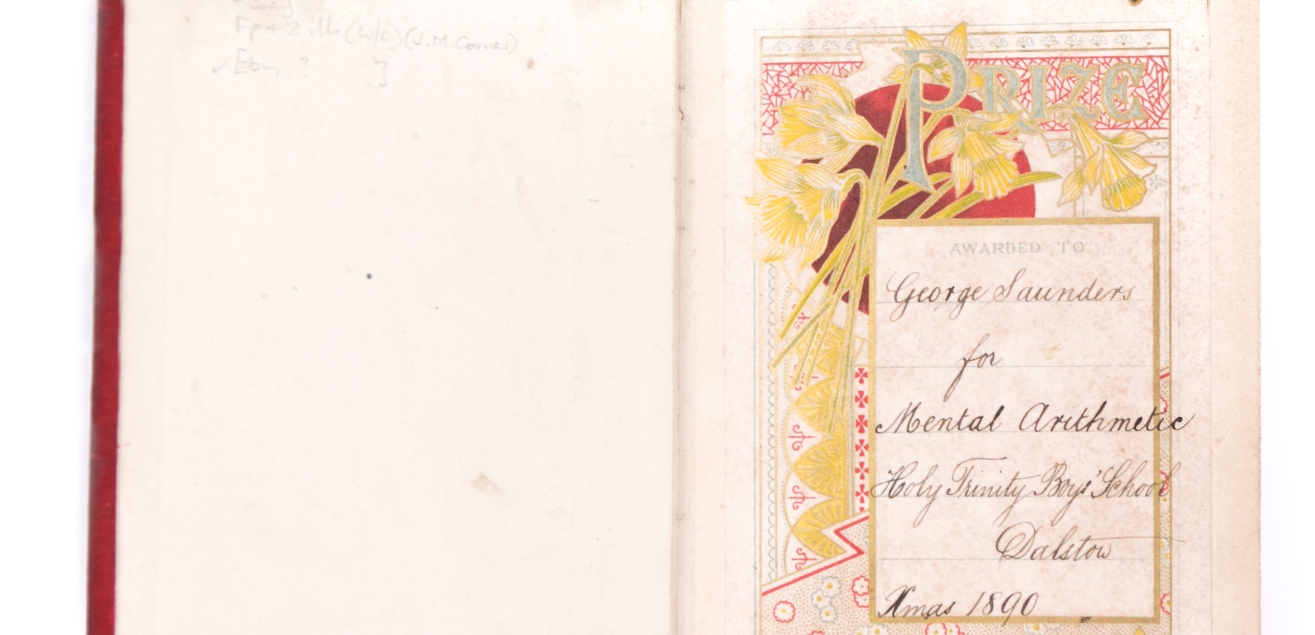 (J.M.Corner)
PRIZE
AWARDED TO
George Saunders
for
Mental Arithmetic
Holy Trinity Boys' School
Dalston
Xmas 1890